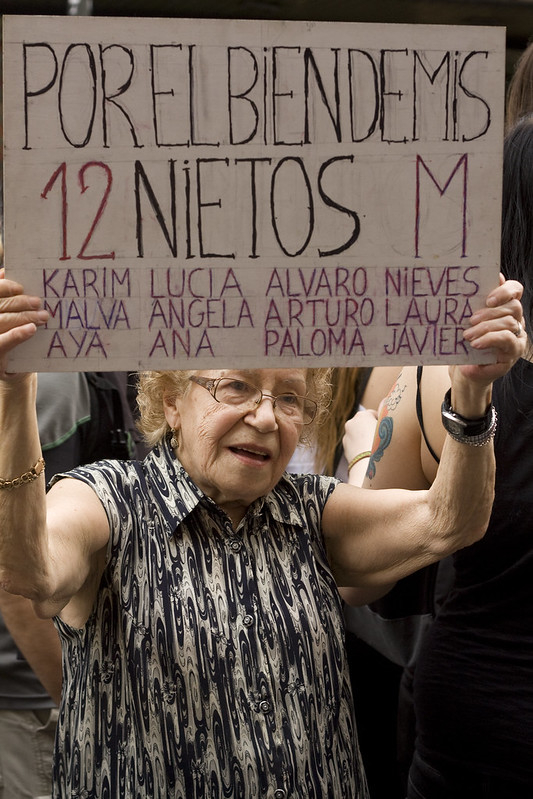 POR EL BiEN DE MiS
12 NiETOS M
KARIM LUCIA ALVARO NiEVES
MALVA ANGELA ARTURO LAURA
AYA ANA PALOMA JAVIER